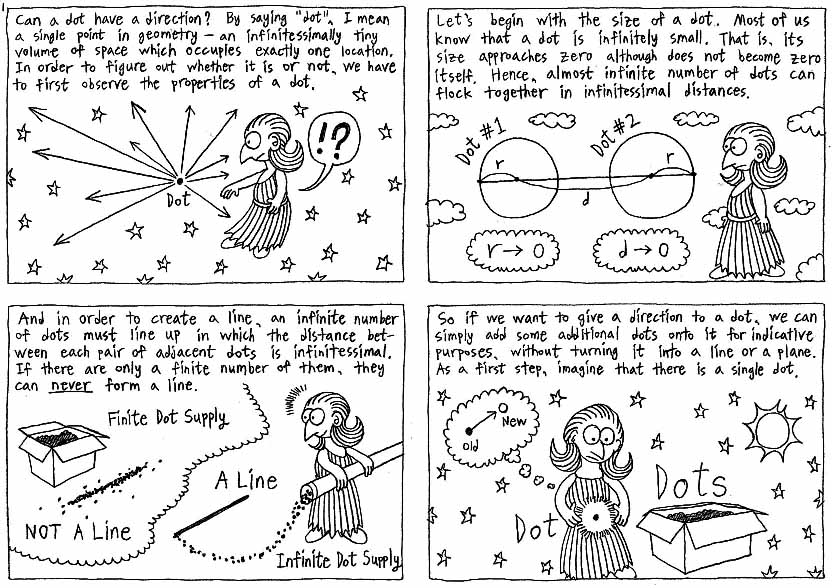 1
Can a dot have a direction? By saying "dot", I mean
a single point in geometry – an infinitessimally tiny
volume of space which occupies exactly one location.
In order to figure out whether it is or not, we have
to first observe the properties of a dot.
!?
Dot
Let's begin with the size of a dot. Most of us
know that a dot is infinitely small. That is, its
size approaches zero although does not become zero
itself. Hence, almost infinite number of dots can
flock together in infinitessimal distances.
Dot #1
Dot #2
r
r
d
r → 0
d → 0
And in order to create a line, an infinite number
of dots must line up in which the distance bet-
ween each pair of adjacent dots is infinitessimal.
If there are only a finite number of them, they
can never form a line.
Finite Dot Supply
A Line
NOT A Line
Infinite Dot Supply
So if we want to give a direction to a dot, we can
simply add some additional dots onto it for indicative
purposes, without turning it into a line or a plane.
As a first step, imagine that there is a single dot.
New
Old
Dots
Dot